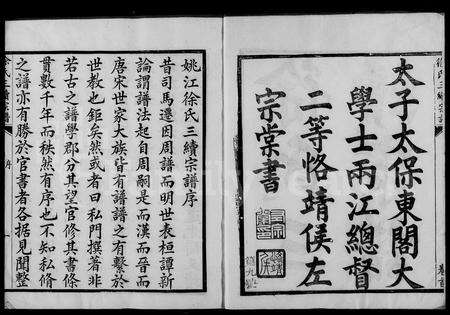 太子太保東閣大
學士兩江總督
二等恪靖侯左
宗棠書
卷首
姚江徐氏三續宗譜序
昔司馬遷因周譜而明世表桓譚新
論謂譜法起自周嗣是而漢而晉而
唐宋世家大族皆有譜譜之有繫於
世教也鉅矣然或者曰私門撰著非
若古之譜學郡分其望官修其書條
貫數千年而秩然有序也不知私脩
之譜亦有勝於官書者各据見聞整
序